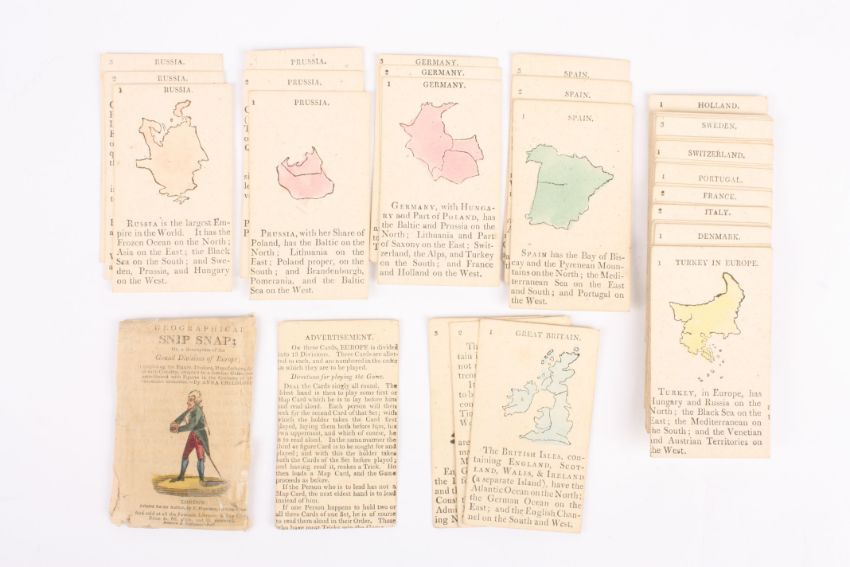 3 RUSSIA.
2 RUSSIA.
1 RUSSIA.
RUSSIA is the largest Em-
pire in the World. It has the
Frozen Ocean on the North;
Asia on the East; the Black
Sea on the South; and Swe-
den, Prussia, and Hungary
on the West.
PRUSSIA.
2 PRUSSIA.
1 PRUSSIA.
PRUSSIA, with her Share of
Poland, has the Baltic on the
North; Lithuania on the
East; Poland proper, on the
South; and Brandenburg,
Pomerania, and the Baltic
Sea on the West.
3 GERMANY.
2 GERMANY.
1 GERMANY.
GERMANY, with HUNGA-
RY and Part of POLAND, has
the Baltic and Prussia on the
North; Lithuania and Part
of Saxony on the East; Swit-
zerland, the Alps, and Turkey
on the South; and France
and Holland on the West.
3 SPAIN.
2 SPAIN.
1 SPAIN.
SPAIN has the Bay of Bis-
cay and the Pyrenean Moun-
tains on the North; the Medi-
terranean Sea on the East
and South; and Portugal on
the West.
1 HOLLAND.
3 SWEDEN.
1 SWITZERLAND.
1 PORTUGAL.
2 FRANCE.
2 ITALY.
1 DENMARK.
1 TURKEY IN EUROPE.
TURKEY, in Europe, has
Hungary and Russia on the
North; the Black Sea on the
East; the Mediterranean on
the South; and the Venetian
and Austrian Territories on
the West.
GEOGRAPHICAL
SNIP SNAP;
Or, a Description of the
Grand Divisions of Europe;
LONDON:
ADVERTISEMENT.
On these Cards, EUROPE is divided
into 13 Divisions. Three Cards are allot-
ted to each, and are numbered in the order
in which they are to be played.
Directions for playing the Game.
DEAL the Cards singly all round. The
eldest hand is then to play some first or
Map Card which he is to lay before him
and read aloud. Each person will then
seek for the second Card of that Set; with
which the holder takes the Card first
played, laying them both before him, his
own uppermost, and which of course, he
is to read aloud. In the same manner the
third or figure Card is to be sought for and
played; and with this the holder takes
both the Cards of the Set before played;
and having read it, makes a Trick. He
then leads a Map Card, and the Game
proceeds as before.
If the Person who is to lead has not a
Map Card, the next eldest hand is to lead
instead of him.
If one Person happens to hold two or
all three Cards of one Set, he is of course
to read them aloud in their Order. Those
who have most Tricks win the Game.
3
2
1 GREAT BRITAIN.
The BRITISH ISLES, con-
taining ENGLAND, SCOT-
LAND, WALES, & IRELAND
(a separate Island), have the
Atlantic Ocean on the North;
the German Ocean on the
East; and the English Chan-
nel on the South and West.